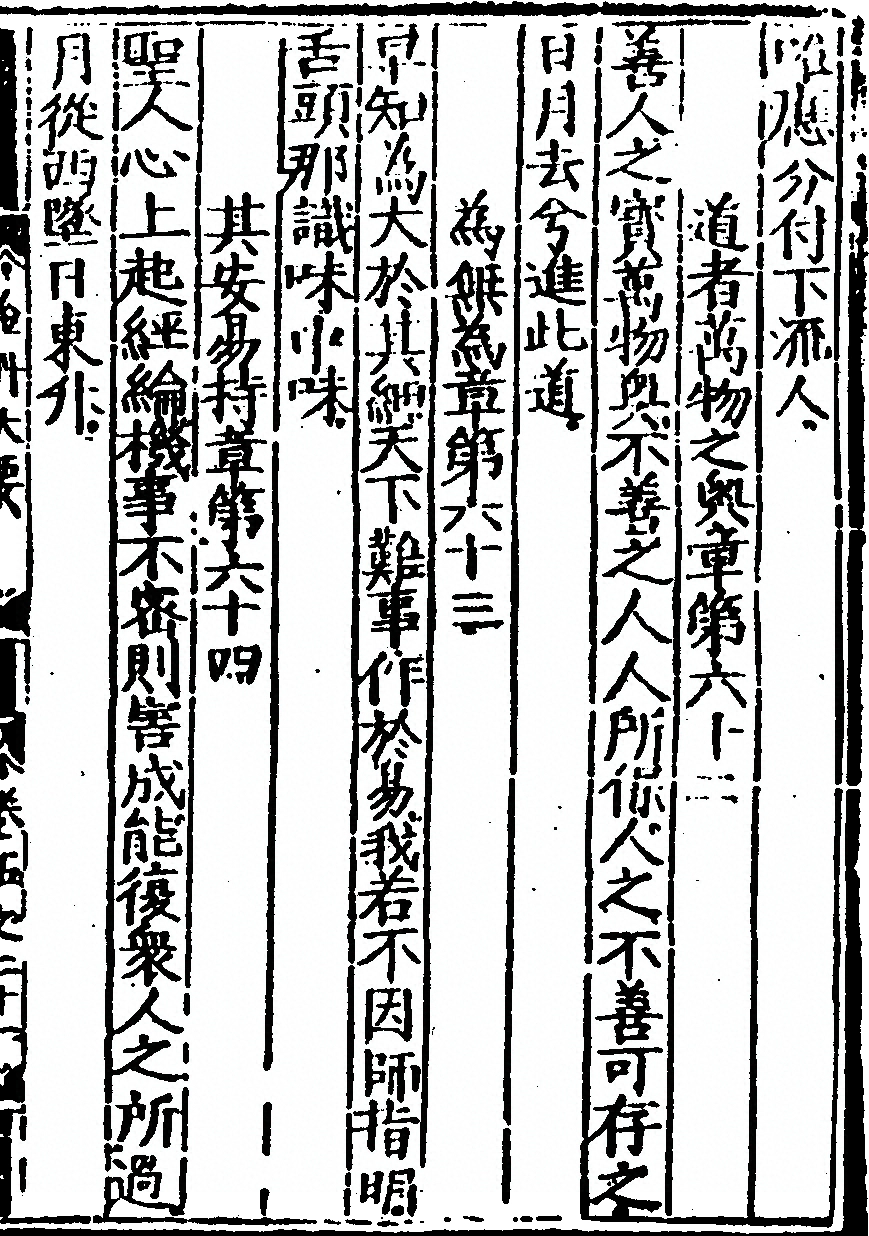 應分付下流人
道者萬物之奧章第六十二
善人之寶萬物奧不善之人人所保人之不善可存之
日月去兮進此道
為無為章第六十三
早知為大於其細天下難事作於易我若不因師指明
舌頭那識味中味
其安易持章第六十四
聖人心上起經綸機事不密則害成能復衆人之所過
月從西墜日東升